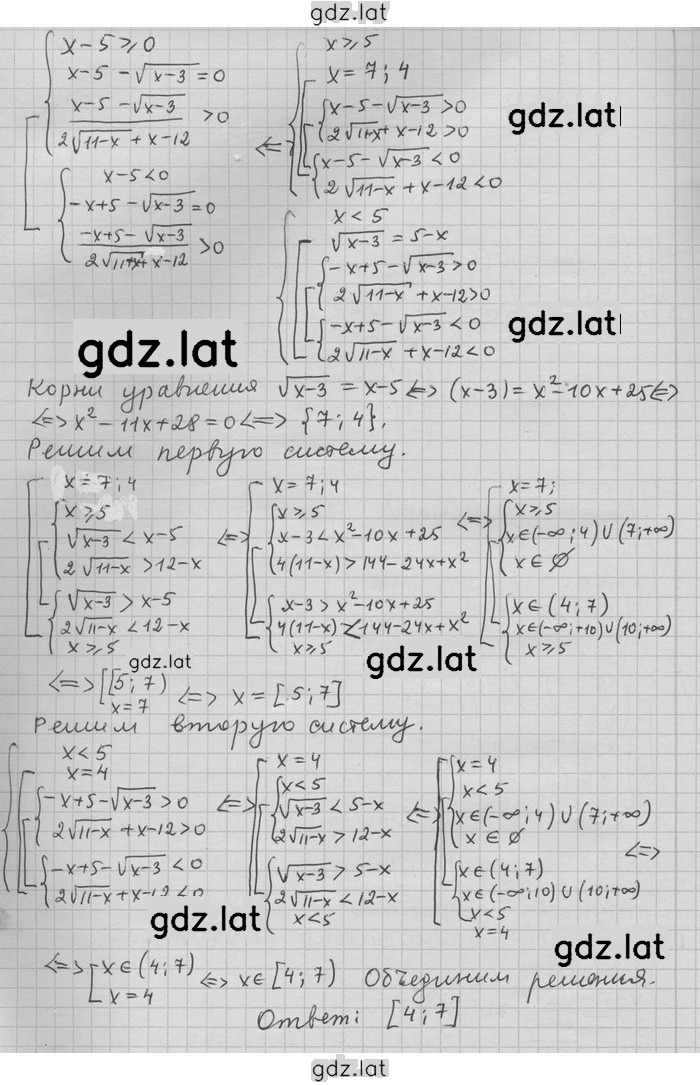 gdz.lat
x-5⩾0
x-5-√x-3=0
x-5-√x-3 / 2√11-x+x-12 >0
x-5<0
-x+5-√x-3=0
-x+5-√x-3 / 2√11+x+x-12 >0
<=
x⩾5
x=7;4
x-5-√x-3>0
2√11+x+x-12>0
x-5-√x-3<0
2√11-x+x-12<0
x<5
√x-3=5-x
-x+5-√x-3>0
2√11-x+x-12>0
-x+5-√x-3<0
2√11-x+x-12<0
gdz.lat
gdz.lat
gdz.lat
Корни уравнения √x-3=x-5<=>(x-3)=x²-10x+25<=>
<=>x²-11x+28=0<=>{7;4}.
Решим первую систему.
x=7;4
x⩾5
√x-3<x-5
2√11-x>12-x
√x-3>x-5
2√11-x<12-x
x⩾5
<=>
x=7;4
x⩾5
x-3<x²-10x+25
4(11-x)>144-24x+x²
x-3>x²-10x+25
4(11-x)<144-24x+x²
x⩾5
<=>
x=7;
x⩾5
x∈(-∞;4)∪(7;+∞)
x∈∅
x∈(4;7)
x∈(-∞;+10)∪(10;+∞)
x⩾5
gdz.lat
gdz.lat
<=>[[5;7) x=7 <=> x=[5;7]
Решим вторую систему.
x<5
x=4
-x+5-√x-3>0
2√11-x+x-12>0
-x+5-√x-3<0
2√11-x+x-12<0
<=>
x=4
x<5
√x-3<5-x
2√11-x>12-x
√x-3>5-x
2√11-x<12-x
x<5
<=>
x=4
x<5
x∈(-∞;4)∪(7;+∞)
x∈∅
x∈(4;7)
x∈(-∞;10)∪(10;+∞)
x<5
x=4
<=>
gdz.lat
gdz.lat
<=>[x∈(4;7) x=4 <=>x∈[4;7) Объединим решения.
Ответ: [4;7]
gdz.lat